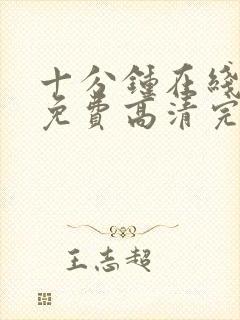 十分鍾在綫
免費高清完
王志超